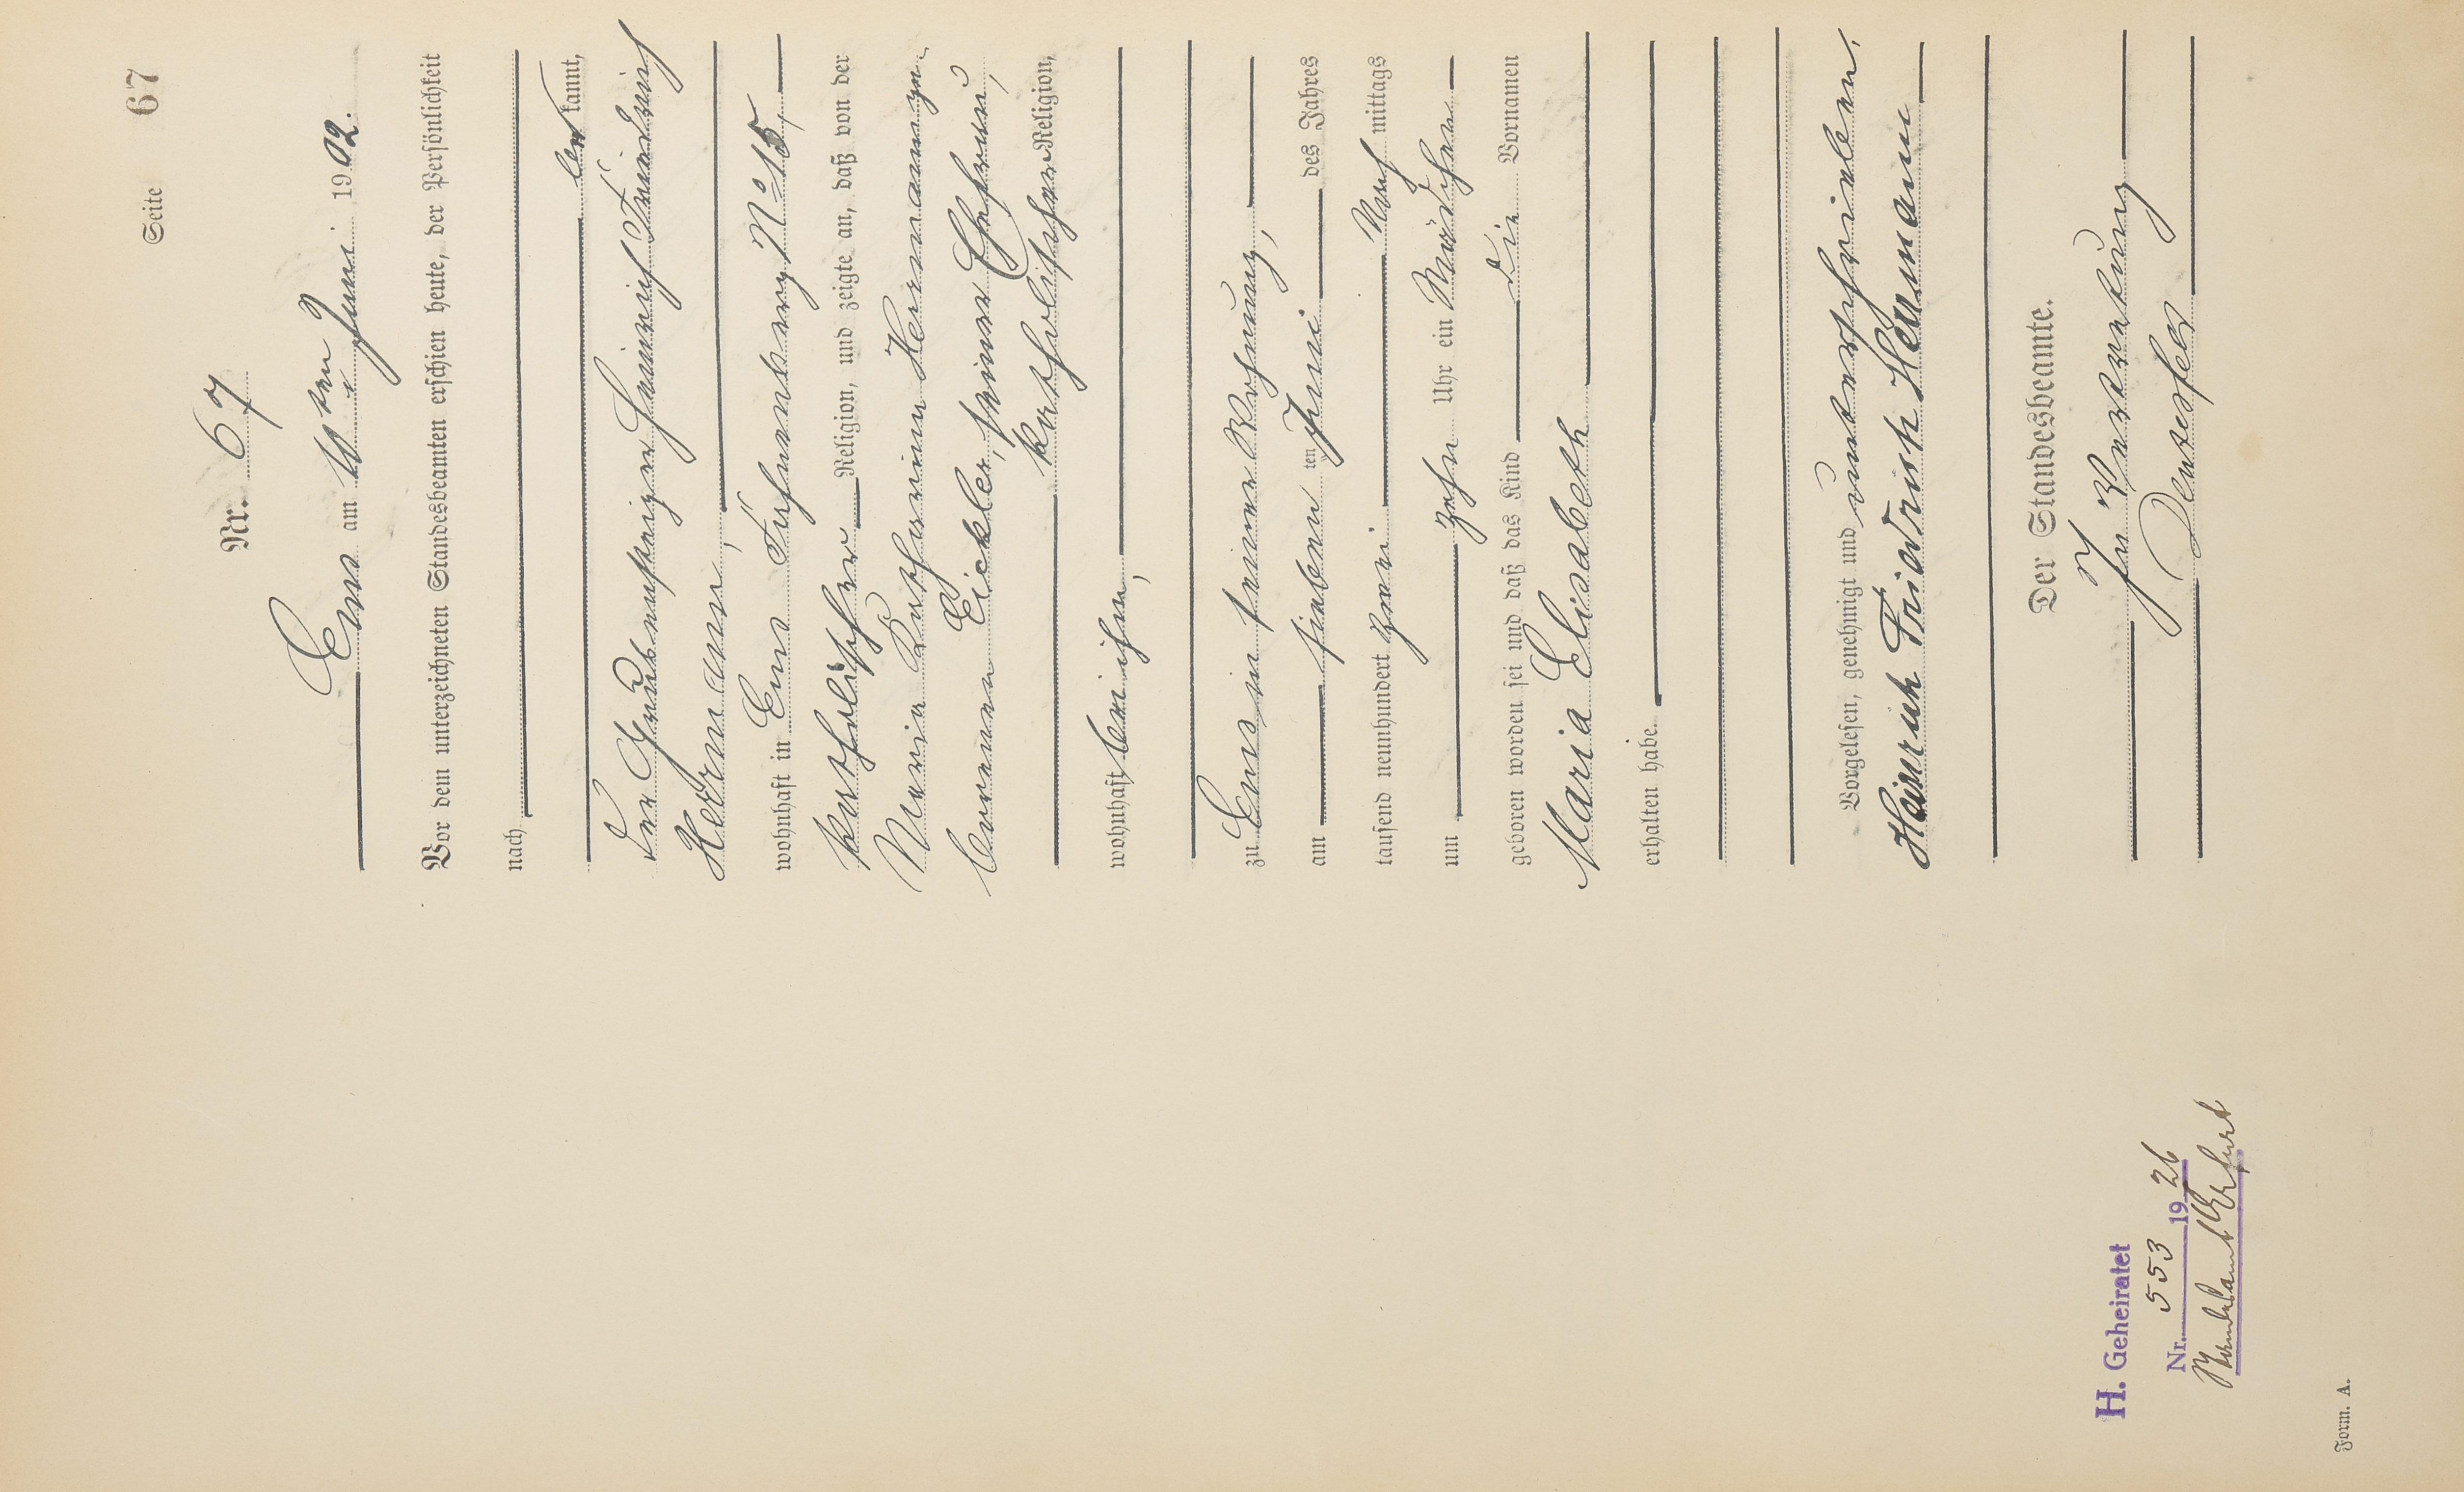 Seite 67
Nr. 67
Ems am 10ten Juni 1902.
Vor dem unterzeichneten Standesbeamten erschien heute, der Persönlichkeit
nach
be kannt,
der Grubensteiger Heinrich Friedrich
Hermann,
wohnhaft in Ems No 15,
katholischer Religion, und zeigte an, daß von der
Maria Katharina Hermann ge-
borenen Eickler, seiner Ehefrau,
katholischer Religion,
wohnhaft bei ihm,
zu Ems in seiner Wohnung,
am sieben ten Juni des Jahres
tausend neunhundert zwei Nach mittags
um zehn Uhr ein Mädchen
geboren worden sei und daß das Kind die Vornamen
Maria Elisabeth
erhalten habe.
Vorgelesen, genehmigt und unterschrieben,
Heinrich Friedrich Hermann
Der Standesbeamte.
In Vertretung
H. Geheiratet
Nr. 553 1926
Standesamt Erfurt
Form. A.